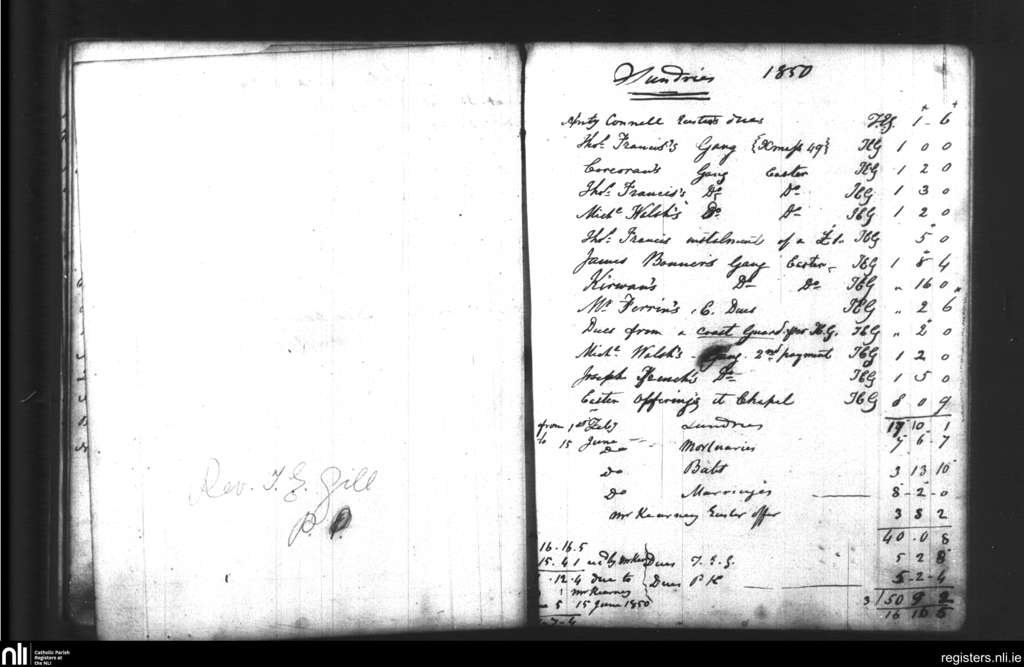 Rev. T. G. Gill
P. P.
Sundries 1850
Anty Connell Easter dues 1 - 6
Thos. Francis's Gang {Xmass 49} TCG 1 0 0
Corcoran's Gang Easter TCG 1 2 0
Thos. Francis's Do Do TCG 1 3 0
Michl Welsh's Do Do TCG 1 2 0
Thos. Francis instalment of a £1. TCG 5 0
James Bonner's Gang Easter TCG 1 8 4
Kirwan's Do Do TCG " 16 0 "
Mr. Perrin's C. Dues TCG " 2 6
Dues from a Coast Guard TCG " 2 0
Michl Walsh's Gang 2nd payment TCG 1 2 0
Joseph Do TCG 1 5 0
Easter Offerings at Chapel TCG 8 0 9
from 1st Feby Sundries 17 10 1
to 15 June Do Mortuaries 7 6 - 7
Do Babt 3 13 10
Do Marriages 8 - 2 - 0
Mr Kearney Easter offer 3 8 2
40 - 0 8
16 . 16 . 5
15 . 4 1 Dues T. G. G. 5 2 8
. 12 . 4 due to Dues P K 5 - 2 - 4
Mr Kearney 3 150 9 2
5 15 June 1850 16 16 5
NLI
Catholic Parish
Registers at
the NLI
registers.nli.ie